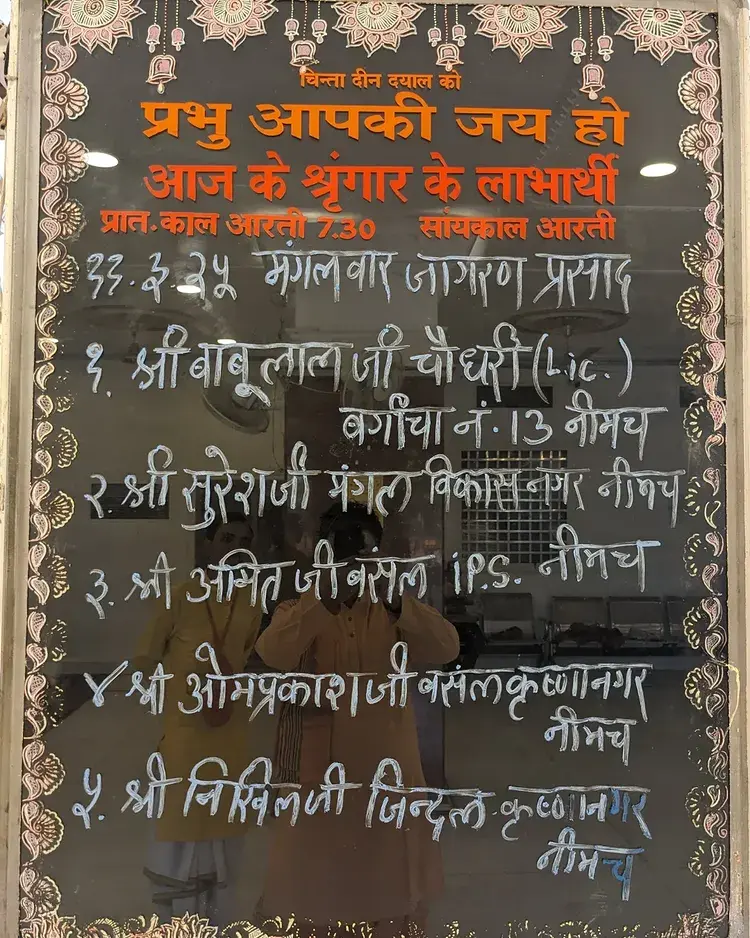 चिन्ता दीन दयाल को
प्रभु आपकी जय हो
आज के श्रृंगार के लाभार्थी
प्रात.काल आरती 7.30 सांयकाल आरती
११.३.२५ मंगलवार जागरण प्रसाद
१. श्री बाबूलाल जी चौधरी (Lic.)
बगीचा नं. 13 नीमच
२. श्री सुरेशजी मंगल विकास नगर नीमच
३. श्री अमित जी बंसल iP.S. नीमच
४ श्री ओमप्रकाश जी बसंल कृष्णानगर
नीमच
५. श्री निखिलजी जिन्दल कृष्णानगर
नीमच